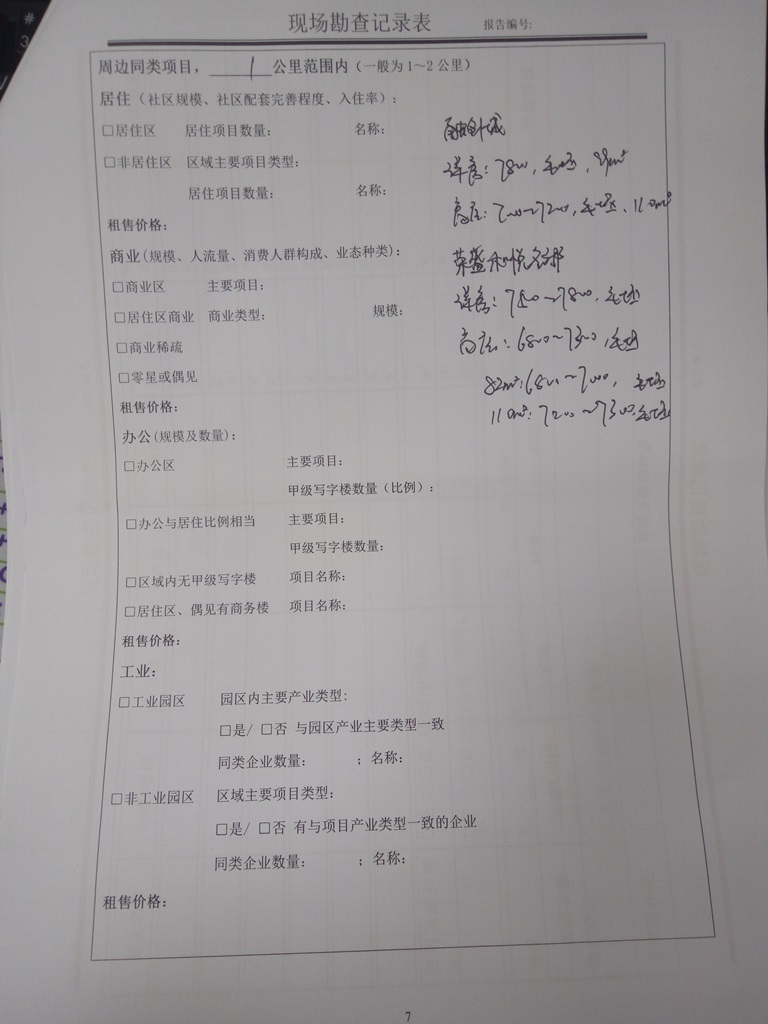 现场勘查记录表 报告编号:
周边同类项目, 1 公里范围内（一般为1～2公里）
居住（社区规模、社区配套完善程度、入住率）:
□居住区 居住项目数量: 名称:
□非居住区 区域主要项目类型:
洋房: 7800, 毛坯,
居住项目数量: 名称:
高层: 7000~7200, 毛坯、110m²
租售价格:
商业(规模、人流量、消费人群构成、业态种类):
荣盛和悦名邸
□商业区 主要项目:
洋房: 7500~7800, 毛坯
□居住区商业 商业类型: 规模:
□商业稀疏
高层: 6800~7300, 毛坯
□零星或偶见
82m²: 6800~7000, 毛坯
租售价格:
110m²: 7200~7300, 毛坯
办公(规模及数量):
□办公区 主要项目:
甲级写字楼数量(比例):
□办公与居住比例相当 主要项目:
甲级写字楼数量:
□区域内无甲级写字楼 项目名称:
□居住区、偶见有商务楼 项目名称:
租售价格:
工业:
□工业园区 园区内主要产业类型:
□是/ □否 与园区产业主要类型一致
同类企业数量: ; 名称:
□非工业园区 区域主要项目类型:
□是/ □否 有与项目产业类型一致的企业
同类企业数量: ; 名称:
租售价格:
7